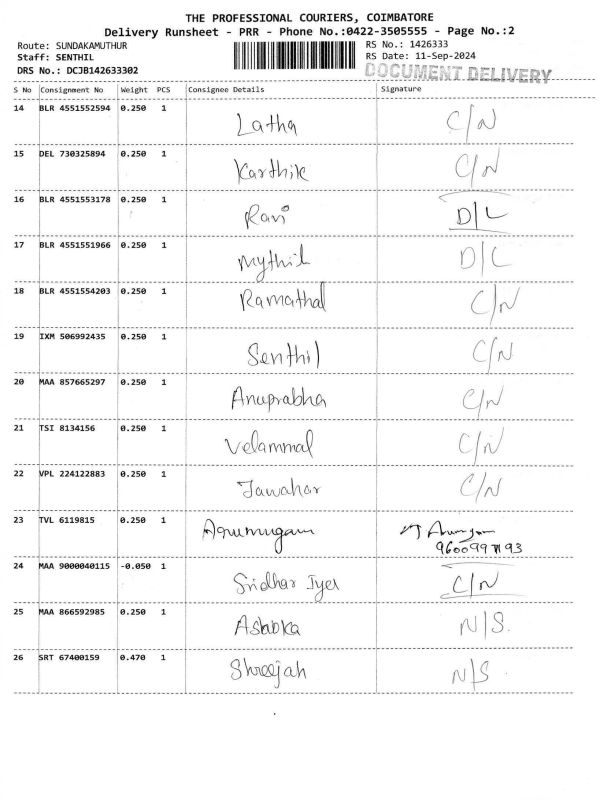 THE PROFESSIONAL COURIERS, COIMBATORE
Delivery Runsheet - PRR - Phone No.:0422-3505555 - Page No.:2
Route: SUNDAKAMUTHUR RS No.: 1426333
Staff: SENTHIL RS Date: 11-Sep-2024
DRS No.: DCJB142633302 DOCUMENT DELIVERY
S No Consignment No Weight PCS Consignee Details Signature
14 BLR 4551552594 0.250 1 Latha C/N
15 DEL 730325894 0.250 1 Karthik C/N
16 BLR 4551553178 0.250 1 Ravi D/L
17 BLR 4551551966 0.250 1 Mythil D/L
18 BLR 4551554203 0.250 1 Ramathal C/N
19 IXM 506992435 0.250 1 Senthil C/N
20 MAA 857665297 0.250 1 Anuprabha C/N
21 TSI 8134156 0.250 1 Velammal C/N
22 VPL 224122883 0.250 1 Jawahar C/N
23 TVL 6119815 0.250 1 Arumugam
24 MAA 9000040115 -0.050 1 Sridhar Iyer C/N
25 MAA 866592985 0.250 1 N/S.
26 SRT 67400159 0.470 1 Shreejah N/S.